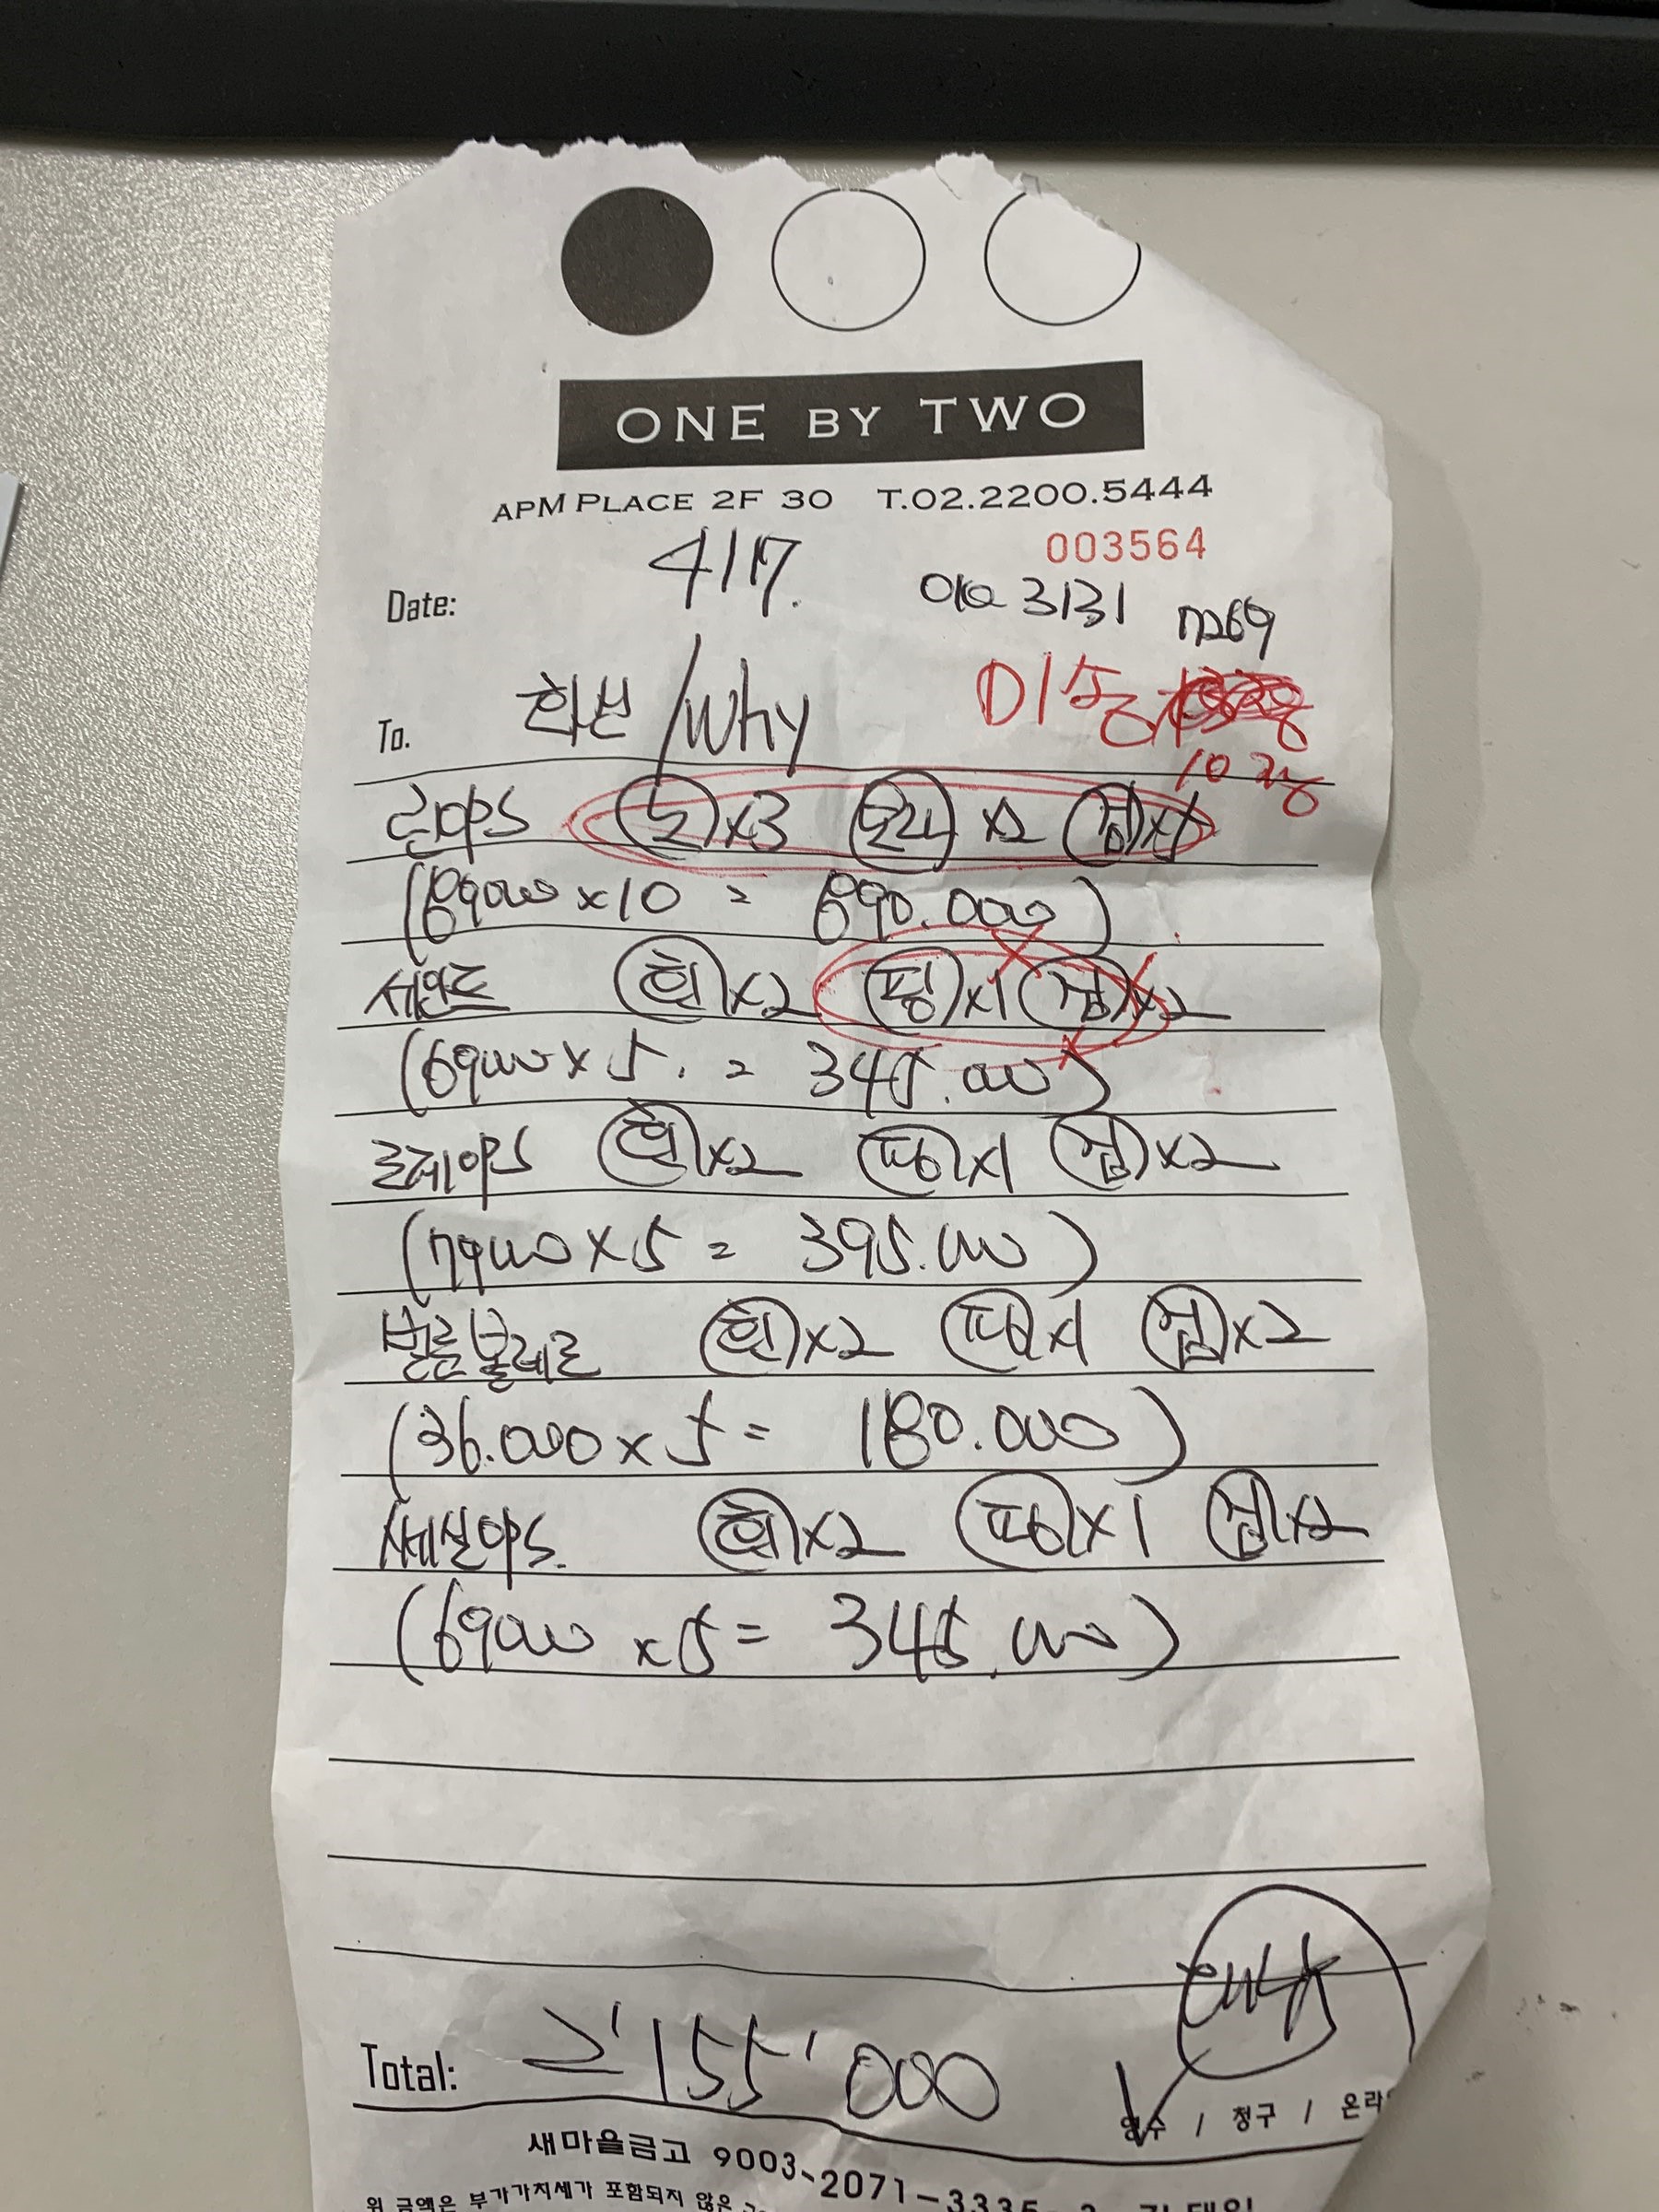 ONE BY TWO
APM PLACE 2F 30 T.02.2200.5444
003564
Date: 4/17. 010 3131 7269
To. 화보 / Why 미송
10장
x3 x2 검 x5
(89000 x 10 = 890.000)
세인트 흰 x2 핑 x1 검 x2
(69000 x 5. = 345.000)
르레이야드 흰 x2 핑 x1 검 x2
(79000 x 5 = 395.000)
벌룬볼레로 흰 x2 핑 x1 검 x2
(36.000 x 5 = 180.000)
흰 x2 핑 x1 검 x2
(69000 x 5 = 345.000)
Total: 2'155'000
영수 / 청구 / 온라
새마을금고 9003-2071-3335-
위 금액은 부가가치세가 포함되지 않은